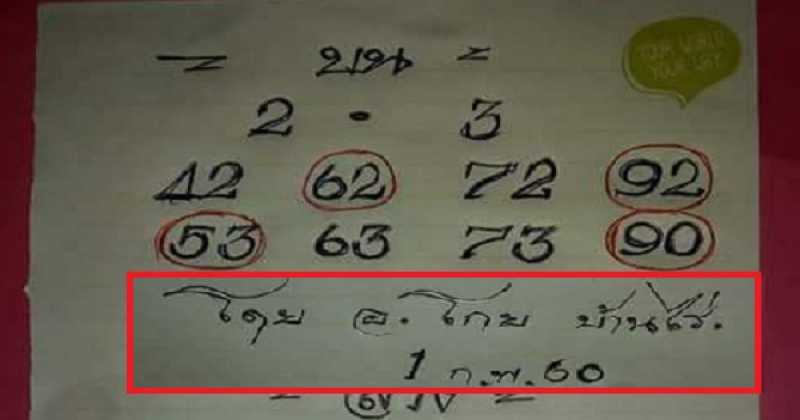 = บน =
YOUR WORLD
YOUR WAY
2 · 3
42 62 72 92
53 63 73 90
โดย อ. โกย บ้านไร่.
1 ก.พ. 60
= ล่าง =